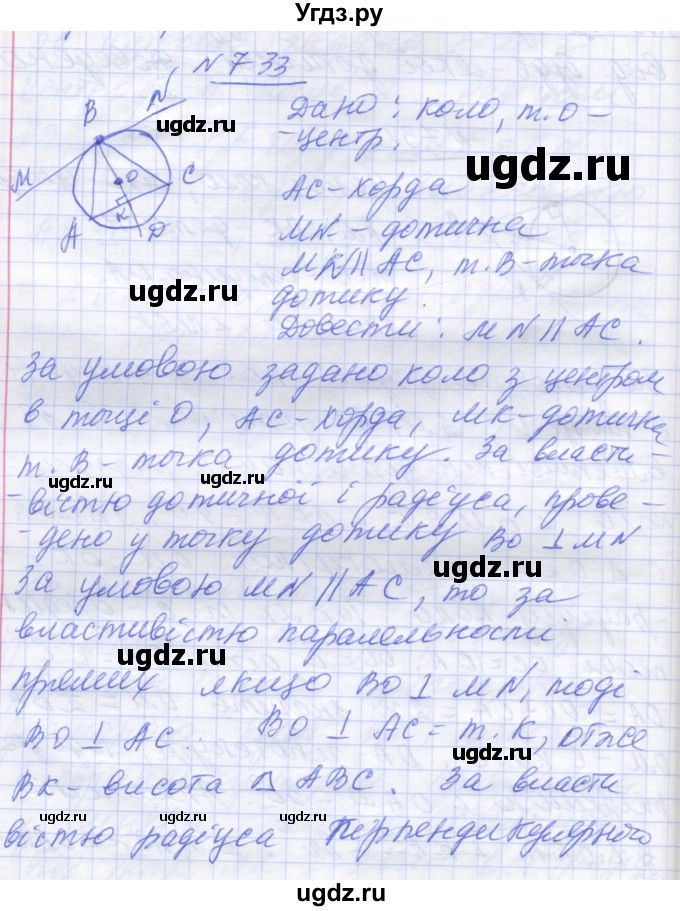 Угдз.ру
N 733
B N
M O C
A K D
Дано: коло, т. О –
- центр.
АС – хорда
MN – дотична
MN || AC, т. В – точка
дотику.
Довести: MN || AC.
За умовою задано коло з центром
в точці О, АС – хорда, МК – дотична
т. В – точка дотику. За власти-
- вістю дотичної і радіуса, прове-
- дено у точку дотику ВО ⊥ MN
За умовою MN || AC, то за
властивістю паралельності
прямих якщо ВО ⊥ MN, тоді
ВО ⊥ АС. ВО ⊥ АС = т. К, отже
ВК – висота △ АВС. За власти
вістю радіуса перпендикулярного
ugdz.ru
ugdz.ru
ugdz.ru
ugdz.ru
ugdz.ru
ugdz.ru
ugdz.ru
ugdz.ru
ugdz.ru
ugdz.ru
ugdz.ru
ugdz.ru